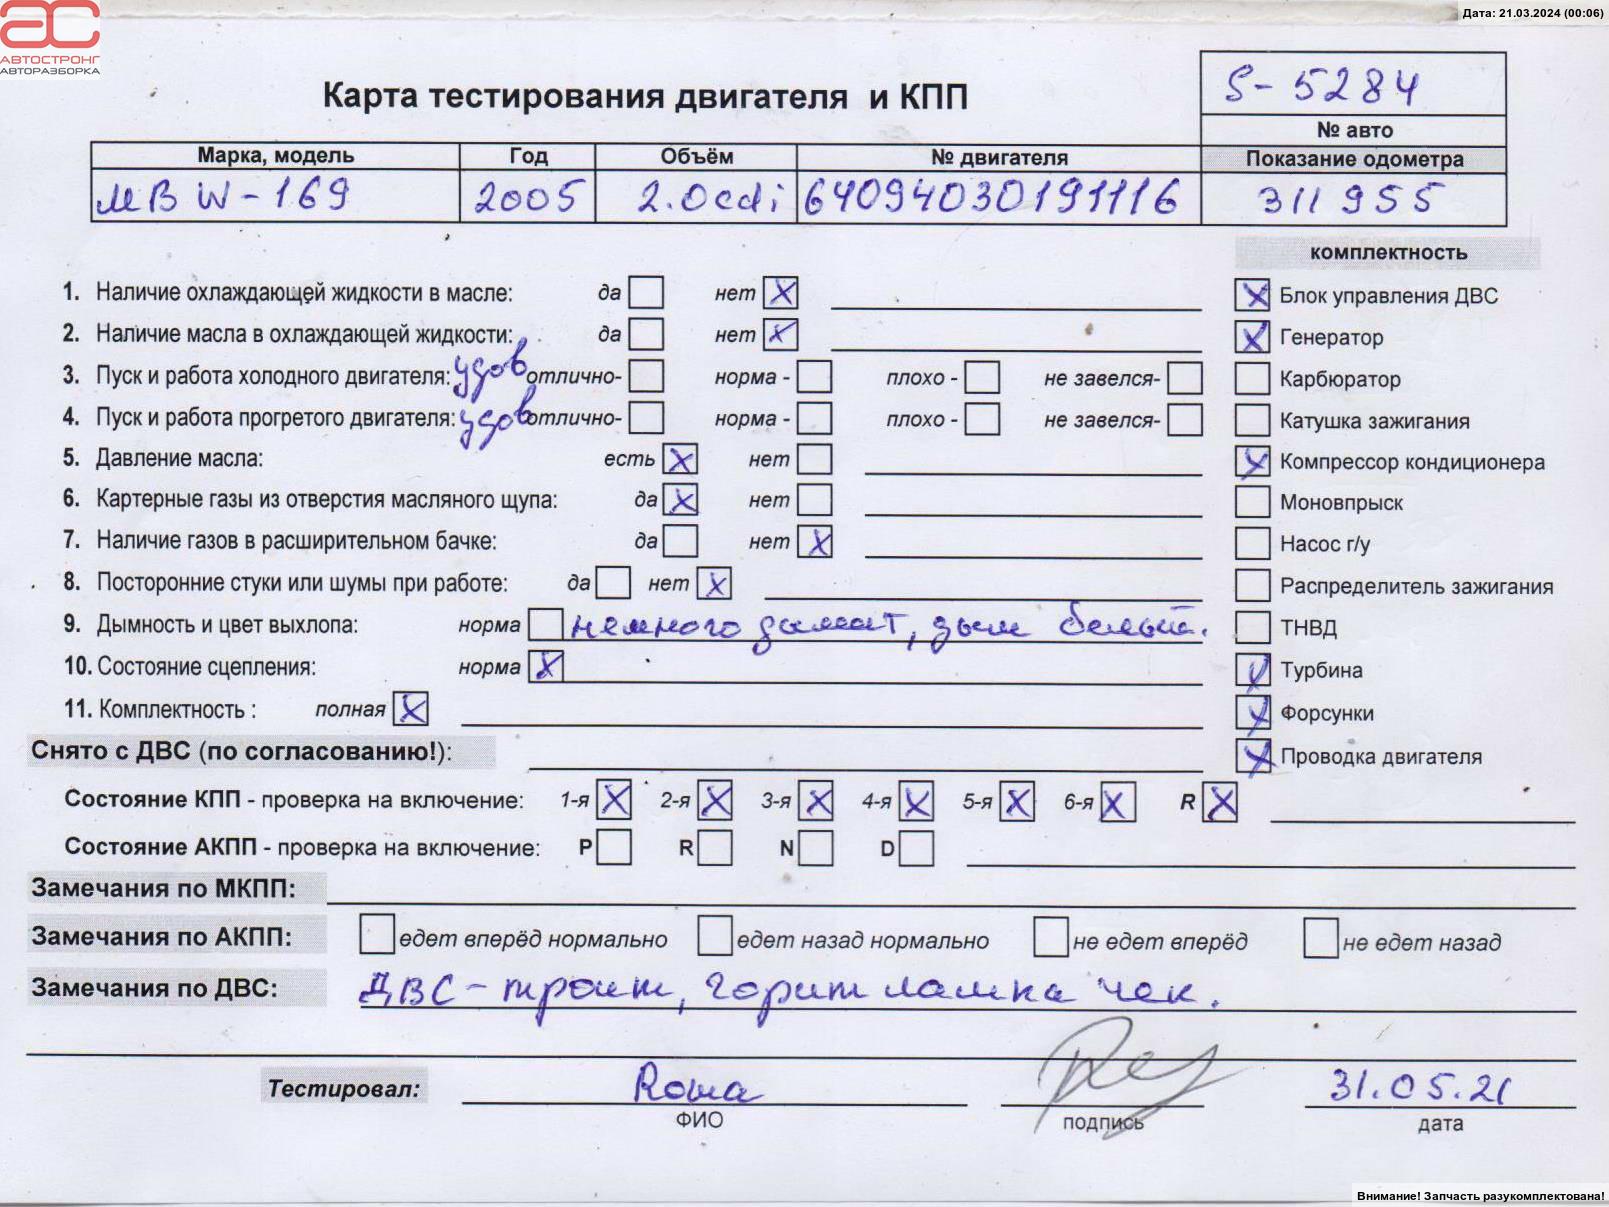 Дата: 21.03.2024 (00:06)
АС
АВТОСТРОНГ
АВТОРАЗБОРКА
Карта тестирования двигателя и КПП
S-5284
№ авто
Марка, модель Год Объём № двигателя Показание одометра
МВ W-169 2005 2.0cdi 64094030191116 311955
комплектность
1. Наличие охлаждающей жидкости в масле: да нет X
Блок управления ДВС
2. Наличие масла в охлаждающей жидкости: да нет X
Генератор
3. Пуск и работа холодного двигателя: удов отлично- норма - плохо - не завелся-
Карбюратор
4. Пуск и работа прогретого двигателя: удов отлично- норма - плохо - не завелся-
Катушка зажигания
5. Давление масла: есть X нет
Компрессор кондиционера
6. Картерные газы из отверстия масляного щупа: да X нет
Моновпрыск
7. Наличие газов в расширительном бачке: да нет X
Насос г/у
8. Посторонние стуки или шумы при работе: да нет X
Распределитель зажигания
9. Дымность и цвет выхлопа: норма немного дымит, дым белый.
ТНВД
10. Состояние сцепления: норма X
Турбина
11. Комплектность : полная X
Форсунки
Снято с ДВС (по согласованию!):
Проводка двигателя
Состояние КПП - проверка на включение: 1-я X 2-я X 3-я X 4-я X 5-я X 6-я X R X
Состояние АКПП - проверка на включение: P R N D
Замечания по МКПП:
Замечания по АКПП: едет вперёд нормально едет назад нормально не едет вперёд не едет назад
Замечания по ДВС: ДВС - троит, горит лампа чек.
Тестировал: Рома 31.05.21
ФИО подпись дата
Внимание! Запчасть разукомплектована!